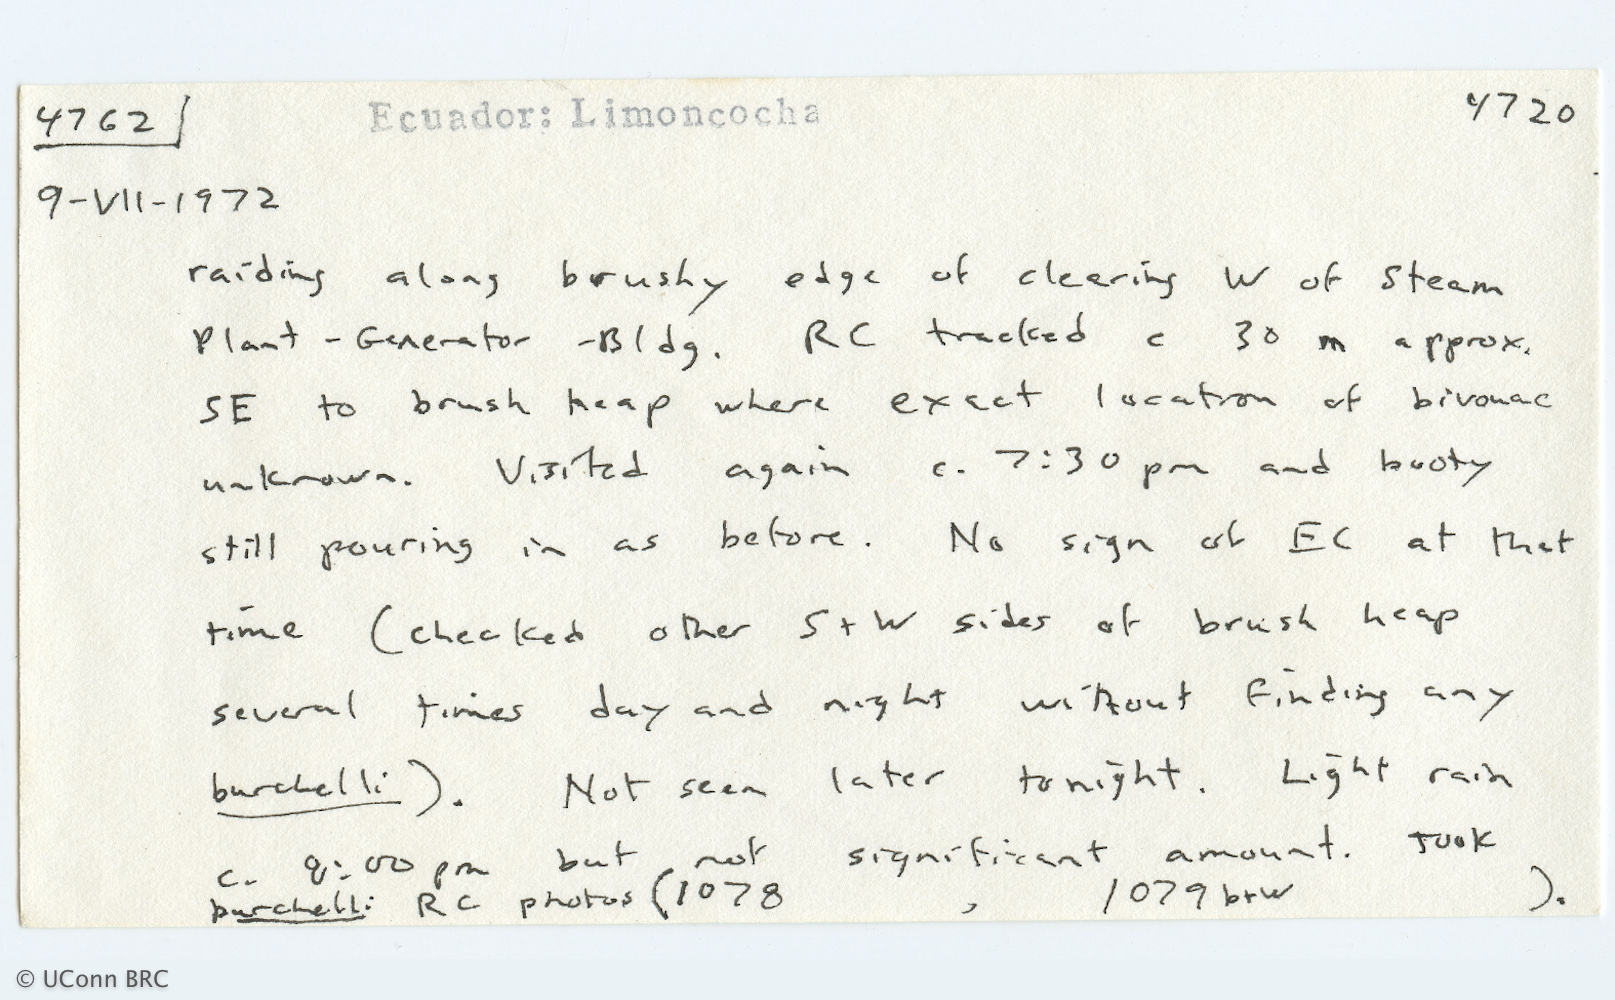 4762 Ecuador: Limoncocha 4720
9-VII-1972
raiding along brushy edge of clearing W of Steam
Plant-Generator-Bldg. RC tracked c 30 m approx.
SE to brush heap where exact location of bivouac
unknown. Visited again c. 7:30 pm and booty
still pouring in as before. No sign of EC at that
time (checked other S+W sides of brush heap
several times day and night without finding any
burchelli). Not seen later tonight. Light rain
c. 9:00 pm but not significant amount. Took
burchelli RC photos (1078 , 1079 b+w ).
© UConn BRC